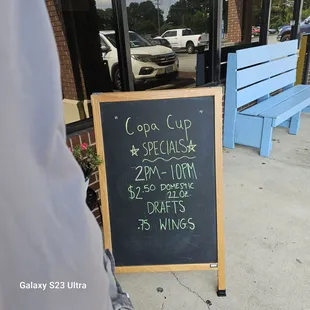 "Copa Cup"
SPECIALS
2PM-10PM
$2.50 DOMESTIC
22 OZ.
DRAFTS
.75 WINGS
Galaxy S23 Ultra